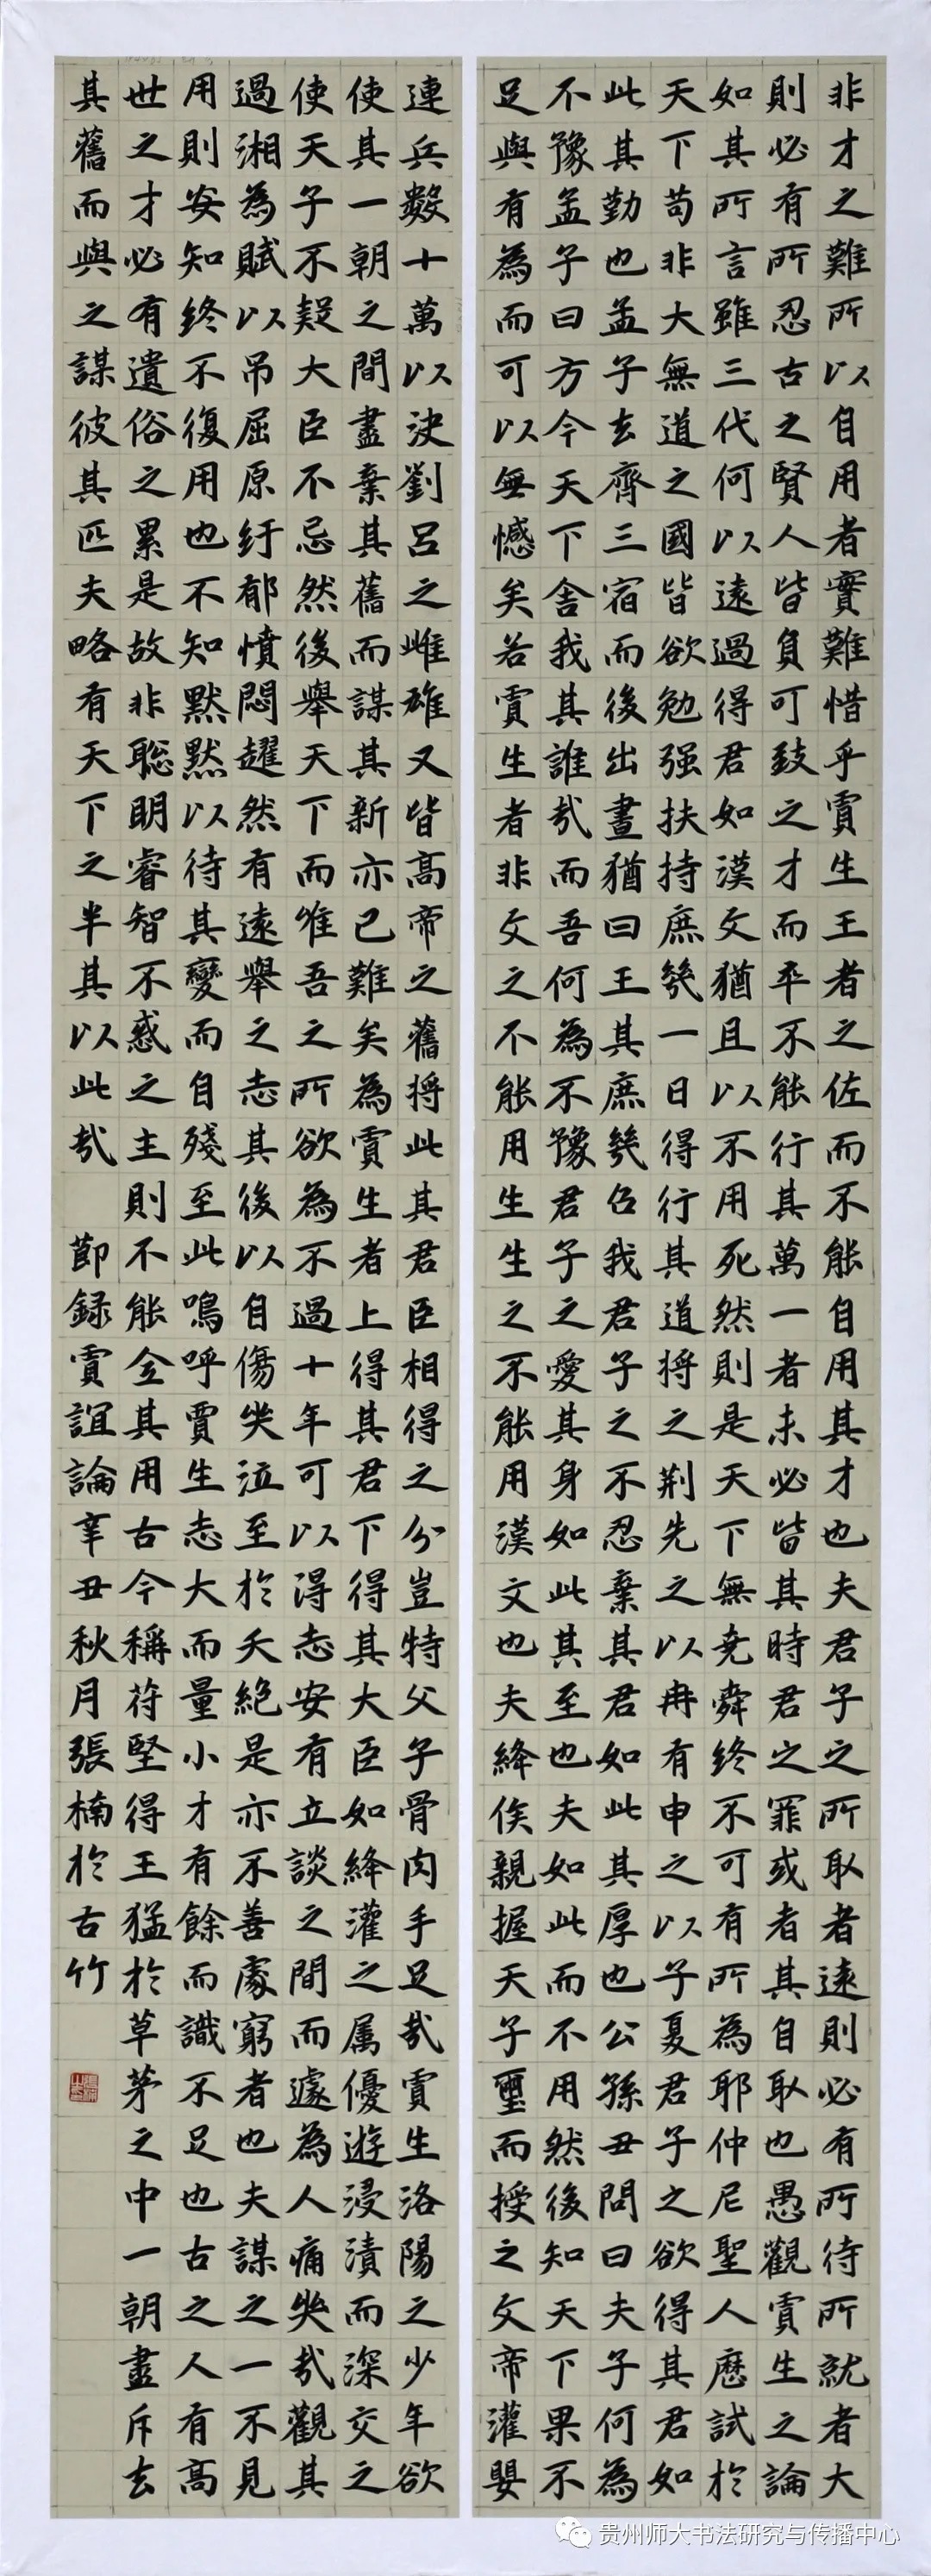 非才之難所以自用者實難惜乎賈生王者之佐而不能自用其才也夫君子之所取者遠則必有所待所就者大
則必有所忍古之賢人皆負可致之才而卒不能行其萬一者未必皆其時君之罪或者其自取也愚觀賈生之論
如其所言雖三代何以遠過得君如漢文猶且以不用死然則是天下無堯舜終不可有所為耶仲尼聖人歷試於
天下苟非大無道之國皆欲勉强扶持庶幾一日得行其道将之荆先之以冉有申之以子夏君子之欲得其君如
此其勤也孟子去齊三宿而後出晝猶曰王其庶幾召我君子之不忍棄其君如此其厚也公孫丑問曰夫子何為
不豫孟子曰方今天下舍我其誰哉而吾何為不豫君子之愛其身如此其至也夫如此而不用然後知天下果不
足與有為而可以無憾矣若賈生者非文之不能用生生之不能用漢文也夫絳侯親握天子璽而授之文帝灌嬰
連兵數十萬以決劉呂之雌雄又皆高帝之舊将此其君臣相得之分豈特父子骨肉手足哉賈生洛陽之少年欲
使其一朝之間盡棄其舊而謀其新亦已難矣為賈生者上得其君下得其大臣如絳灌之属優遊浸漬而深交之
使天子不疑大臣不忌然後舉天下而唯吾之所欲為不過十年可以得志安有立談之間而遽為人痛哭哉觀其
過湘為賦以吊屈原紆郁憤悶趯然有遠舉之志其後以自傷哭泣至於夭絕是亦不善處窮者也夫謀之一不見
用則安知終不復用也不知默默以待其變而自殘至此嗚呼賈生志大而量小才有餘而識不足也古之人有高
世之才必有遺俗之累是故非聰明睿智不惑之主則不能全其用古今稱苻堅得王猛於草茅之中一朝盡斥去
其舊而與之謀彼其匹夫略有天下之半其以此哉 節録賈誼論辛丑秋月張楠於古竹
贵州师大书法研究与传播中心